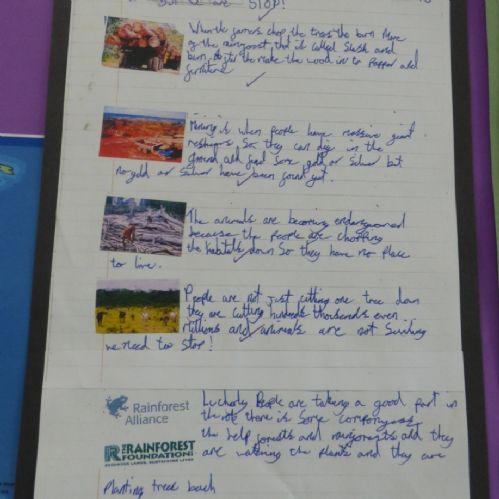 STOP!
When the farmers chop the trees the burn More
of the rainforest, that it called Slash and
burn. the make the wood in to Papper and
furniture
Mining is when people have massive giant
so they can dig in the
ground and find some gold or Silver but
no gold or Silver have been found yet.
The animals are becoming endangoured
because the people are chopping
the habitats down So they have no place
to live.
People are not just cutting one tree down
they are cutting hundreds thousands even
Millions and animals are not
we need to stop!
Rainforest
Alliance
THE RAINFOREST
FOUNDATION
Luckely People are taking a good part in
the there is some
the help forests and and they
are the plants and they are
planting tree back